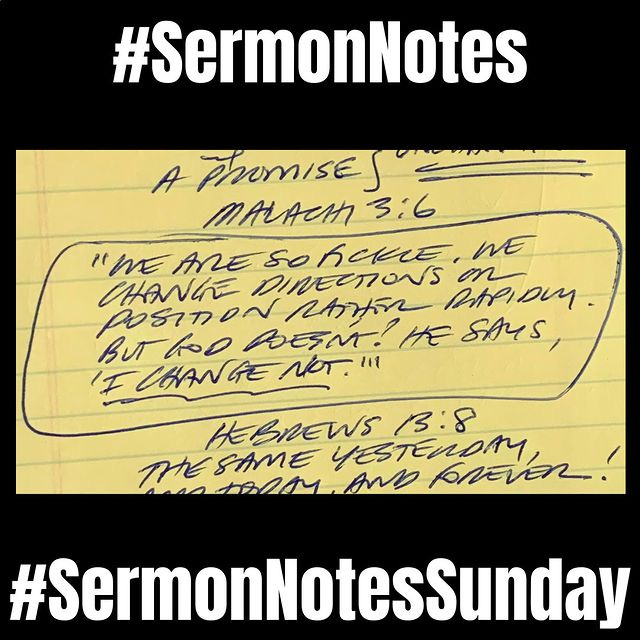 #SermonNotes
A PROMISE }
MALACHI 3:6
"WE ARE SO FICKLE. WE
CHANGE DIRECTIONS OR
POSITION RATHER RAPIDLY.
BUT GOD DOESN'T! HE SAYS,
'I CHANGE NOT.'"
HEBREWS 13:8
THE SAME YESTERDAY,
AND TODAY, AND FOREVER!
#SermonNotesSunday